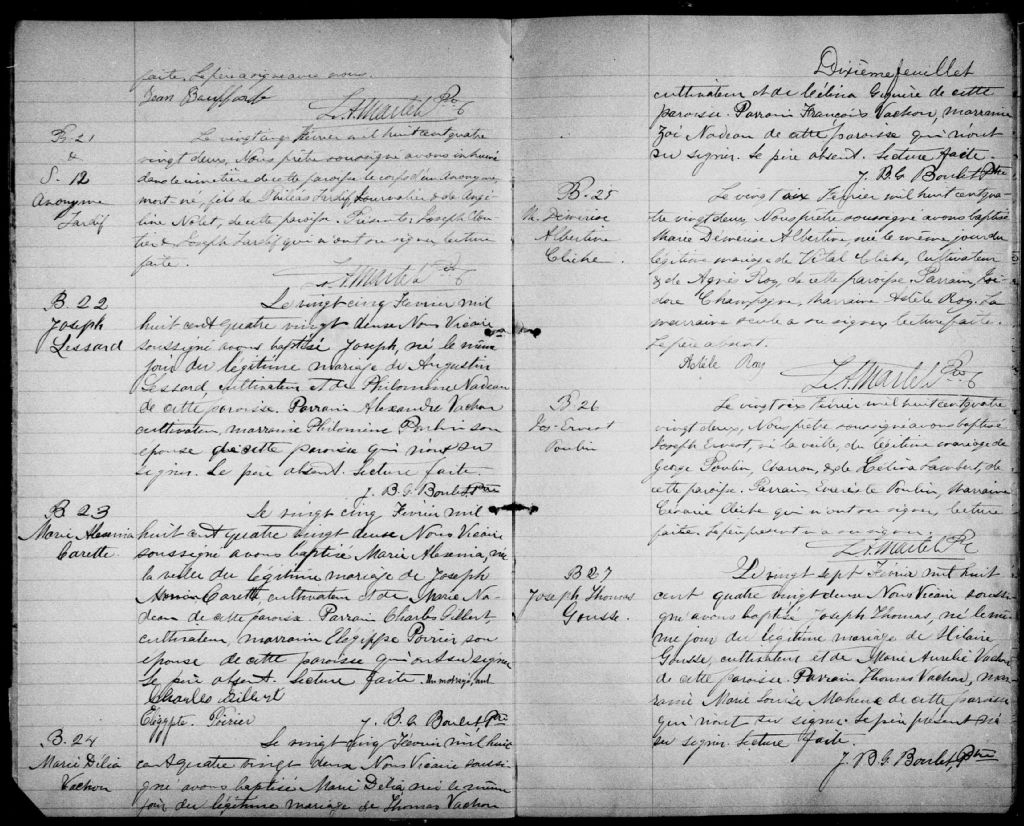 faite. Le père a signé avec nous.
Jean
L. A. Martel Ptre
B. 21
&
S. 12
Anonyme
Tardif
Le vingt cinq février mil huit cent quatre
vingt deux, Nous prêtre soussigné avons inhumé
dans le cimetière de cette paroisse le corps d'un Anonyme,
mort né, fils de Philéas Tardif, Journalier & de Angé-
line Nolet, de cette paroisse. Présents Joseph Clou-
tier & Joseph Tardif qui n'ont su signer. Lecture
faite.
L. A. Martel Ptre
B. 22
Joseph
Lessard
Le vingt cinq Février mil
huit cent quatre vingt deuse Nous Vicaire
soussigné avons baptisé Joseph, né le même
jour du légitime mariage de Augustin
Lessard cultivateur et de Philomène Nadeau
de cette paroisse. Parrain Alexandre Vachon
cultivateur, marraine Philomène Poulin son
epouse de cette paroisse qui n'ont su
signer. Le père absent. Lecture faite.
J. B. G. Boulet, Ptre
B 23
Marie Alesenia
Carette
Le vingt cinq Février mil
huit cent quatre vingt deuse Nous Vicaire
soussigné avons baptisé Marie Alesenia, née
la veille du légitime mariage de Joseph
Carette cultivateur et de Marie Na-
deau de cette paroisse. Parrain Charles Gilbert
cultivateur, marraine Elégippe Poirier son
epouse de cette paroisse qui ont su signer
Le père absent. Lecture faite. Un mot rayé, nul
Charles Gilbert
Elégypte Poirier
J. B. G. Boulet Ptre
B. 24
Marie Délia
Vachon
Le vingt cinq Février mil huit
cent quatre vingt deux Nous Vicaire soussi-
gné avons baptisé Marie Delia, née le même
jour du légitime mariage de Thomas Vachon
Dixième feuillet
cultivateur et de Célina Giguère de cette
paroisse. Parrain François Vachon, marraine
Zoé Nadeau de cette paroisse qui n'ont
su signer. Le père absent. Lecture faite.
J. B. G. Boulet Ptre
B. 25
M. Démerise
Albertine
Cliche.
Le vingt six Février mil huit cent qua-
tre vingt deux, Nous prêtre soussigné avons baptisé
Marie Démerise Albertine, née le même jour du
légitime mariage de Vital Cliche, Cultivateur
& de Agnès Roy, de cette paroisse Parrain, Isi-
dore Champagne, Marraine Adèle Roy. La
marraine seule a su signer, lecture faite.
Le père absent.
Adèle Roy
L. A. Martel Ptre
B. 26
Jos. Ernest
Poulin
Le vingt six Février mil huit cent quatre
vingt deux, Nous prêtre soussigné avons baptisé
Joseph Ernest, né la veille, du légitime mariage de
George Poulin, Charron, & de Célina Lambert, de
cette paroisse. Parrain, Evariste Poulin, Marraine
Césarie Cliche qui n'ont su signer, lecture
faite. Le père présent n'a su signer.
L. A. Martel Ptre
B 27
Joseph Thomas
Gousse.
Le vingt sept Février mil huit
cent quatre vingt deux Nous Vicaire soussi-
gné avons baptisé Joseph Thomas, né le mê-
me jour du légitime mariage de Hilaire
Gousse, cultivateur et de Marie Aurelie Vachon
de cette paroisse. Parrain Thomas Vachon, mar-
raine Marie Louise Maheux de cette paroisse
qui n'ont su signer. Le père présent n'a
su signer. Lecture faite.
J. B. G. Boulet, Ptre